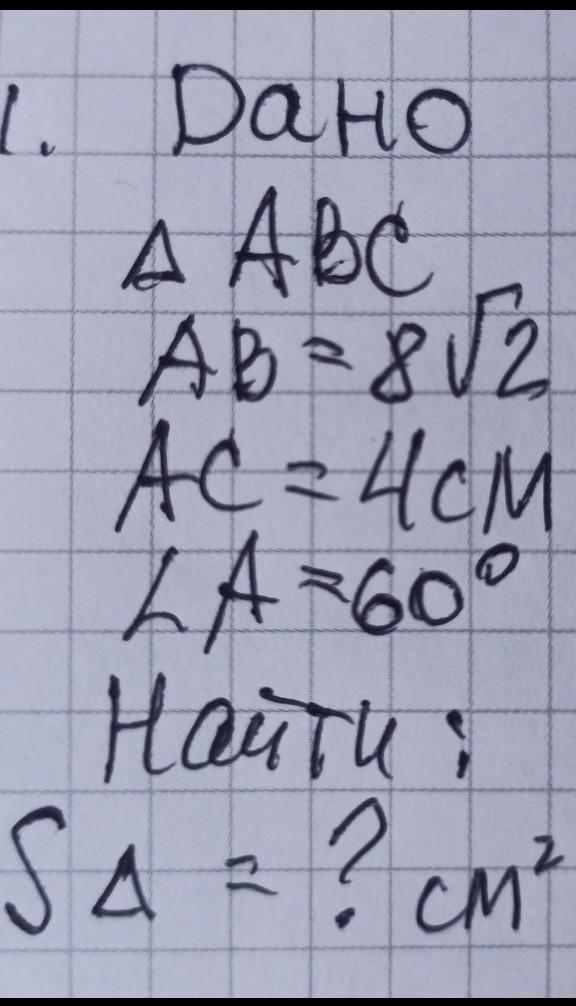 1. Дано
Δ ABC
AB = 8√2
AC = 4см
∠A = 60°
Найти :
S Δ = ? см²